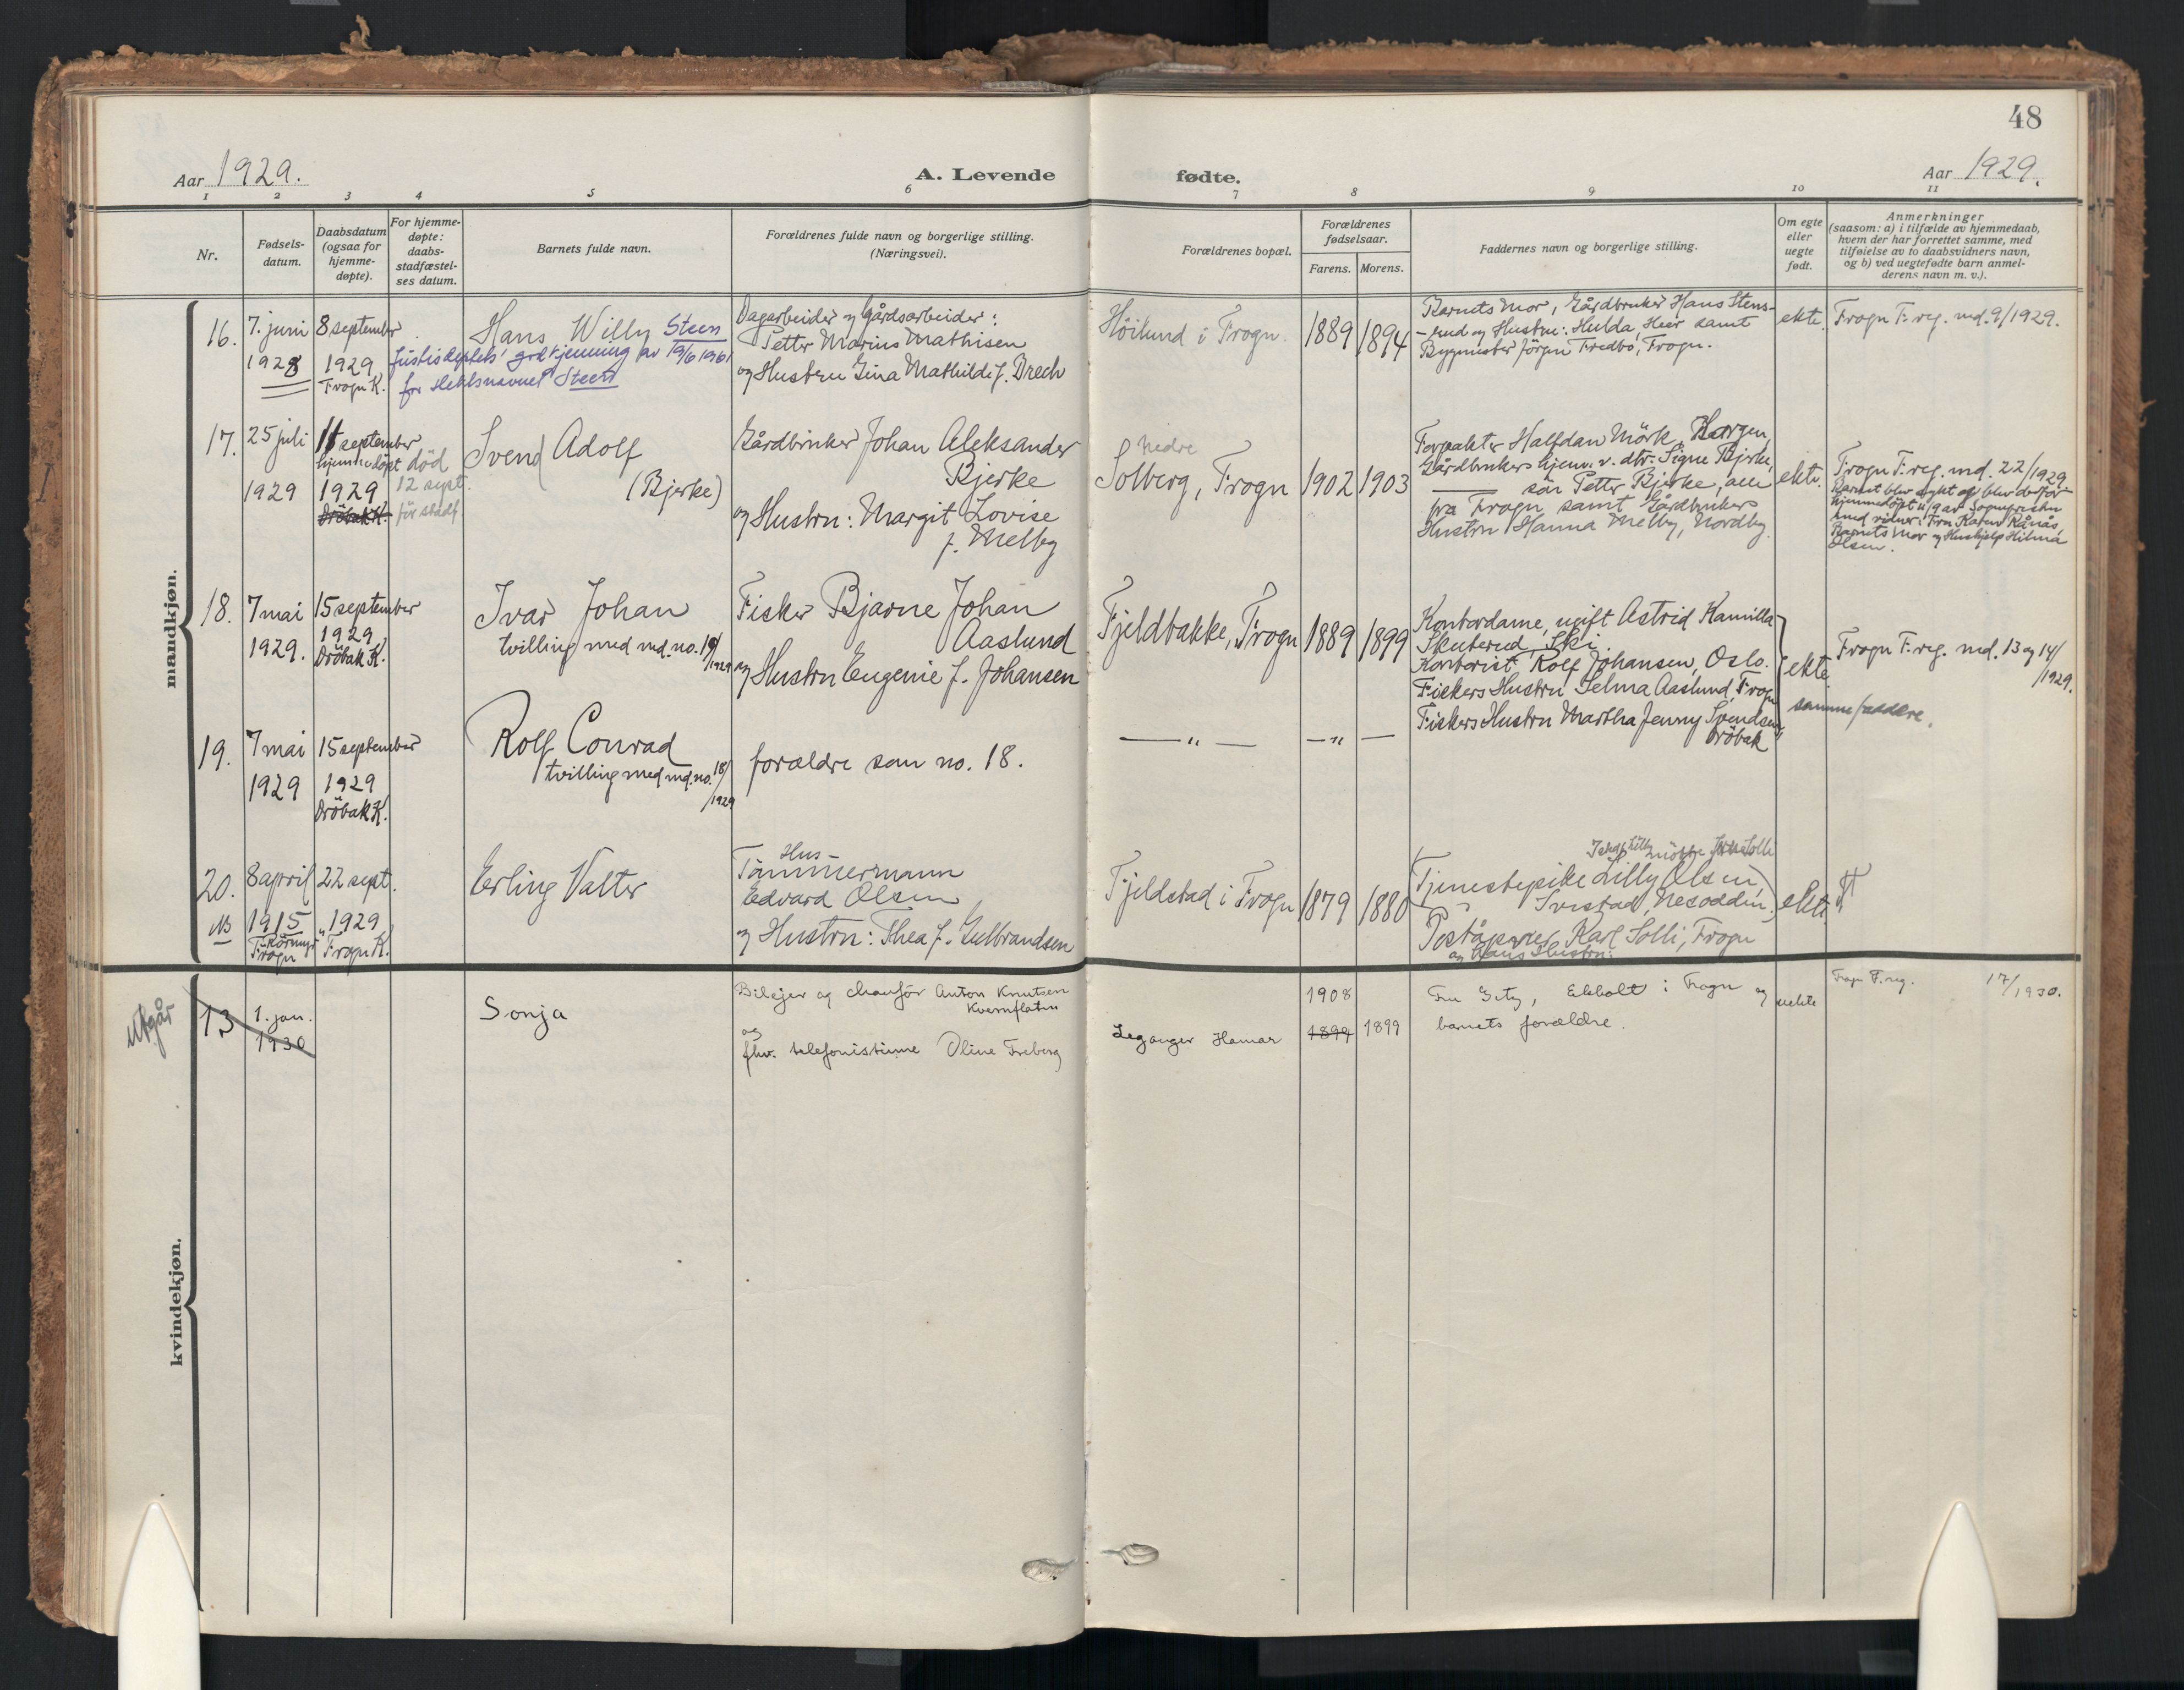 48
Aar 1929.
A. Levende
fødte.
Aar 1929.
1 2 3 4 5 6 7 8 9 10 11
Nr.
Fødsels-
datum.
Daabsdatum
(ogsaa for
hjemme-
døpte).
For hjemme-
døpte:
daabs-
stadfæstel-
ses datum.
Barnets fulde navn.
Forældrenes fulde navn og borgerlige stilling.
(Næringsvei).
Forældrenes bopæl.
Forældrenes
fødselsaar.
Farens. Morens.
Faddernes navn og borgerlige stilling.
Om egte
eller
uegte
født.
Anmerkninger
(saasom: a) i tilfælde av hjemmedaab,
hvem der har forrettet samme, med
tilføielse av to daabsvidners navn,
og b) ved uegtefødte barn anmel-
derens navn m. v.).
mandkjøn.
16.
7. juni
1928
8 september
1929
Frogn K.
Justisdeptets godkjenning av 19/6 1961
for slektsnavnet Steen
Hans Willy Steen
Dagarbeider og gårdsarbeider:
Petter Marius Mathisen
og Hustru Gina Mathilde f. Brech
Höilund i Frogn.
1889
1894
Barnets Mor, Gårdbruker Hans Stens-
-rud og Hustru: Hulda, Heer samt
Bygmester Jörgen Fredbo, Frogn.
ekte.
Frogn F. reg. md. 9/1929.
17.
25 juli
1929
11 september
hjemmedöpt
1929
Dröbak K.
död
12 sept.
för stadf.
Svend Adolf
(Bjerke)
Gårdbruker Johan Aleksander
Bjerke
og Hustru: Margit Lovise
f. Melby
Nedre
Solberg, Frogn
1902
1903
Forpakter Halfdan Mörk,
Gårdbrukers hjemv. v. dtr. Signe Bjerke,
sön Petter Bjerke, alle
fra Frogn samt Gårdbrukers
Hustru Hanna Melby, Nordby.
ekte.
Frogn F. reg. md. 22/1929
Barnet blev sykt og blev derfor
hjemmedöpt 11/9 av Sognepresten
med vidner: Fru Karen Rånås,
Barnets Mor og Hushjelp Hilma
Olsen.
18.
7 mai
1929.
15 september
1929
Dröbak K.
Ivar Johan
tvilling med md. no. 19/1929
Fisker Bjarne Johan
Aaslund
og Hustru Eugenie f. Johansen
Fjeldbakke, Frogn
1889
1899
Kontordame, ugift Astrid Kamilla
Skuterud, Ski
Kontorist Rolf Johansen, Oslo.
Fiskers Hustru Selma Aaslund, Frogn
Fiskers Hustru Martha Jenny Svendsen,
Dröbak
ekte.
Frogn F. reg. md. 13 og 14/
1929.
samme faddere.
19.
7 mai
1929
15 september
1929
Dröbak K.
Rolf Conrad
tvilling med md. no. 18/
1929
forældre som no. 18.
— " —
— " —
20.
NB
8 april
1915
Frogn
22 sept.
1929
Frogn K.
Erling Valter
Hus-
Tömmermann
Edvard Olsen
og Hustru: Thea f. Gulbrandsen
Fjeldstad i Frogn
1879
1880
Tjenestepike Lilly Olsen,
Ivistad, Nesodden.
Poståpner Karl Solli, Frogn
og Hans Hustru:
ekte.
kvindekjøn.
Utgår
13
1. jan.
1930
Sonja
Bileier og chauför Anton Knutsen
Kvernflaten
og
fhv. telefonistinne Oline Freberg
Leganger Hamar
1908
1899
1899
Fru Gity, Ekholt i Frogn og
barnets forældre.
uekte
Frogn F. reg. 17/1930.